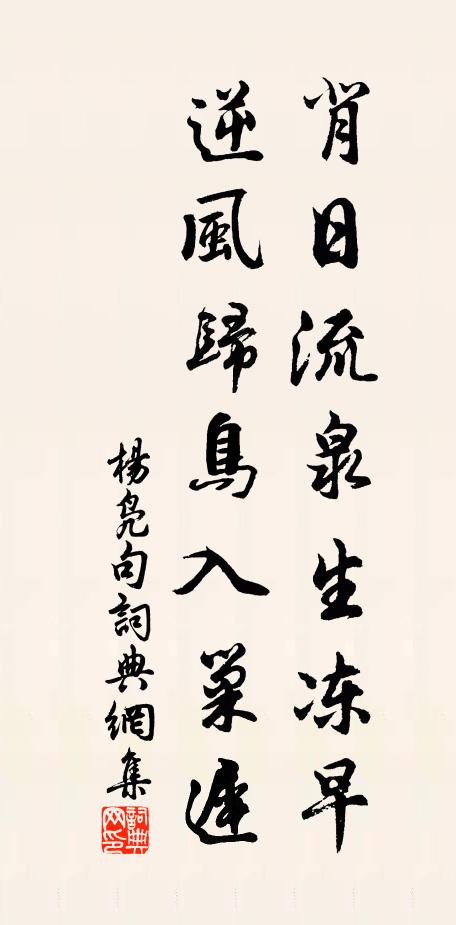 背日流泉生冻早
逆風歸鳥入巢遲
楊凫句詞典網集
詞典
网印